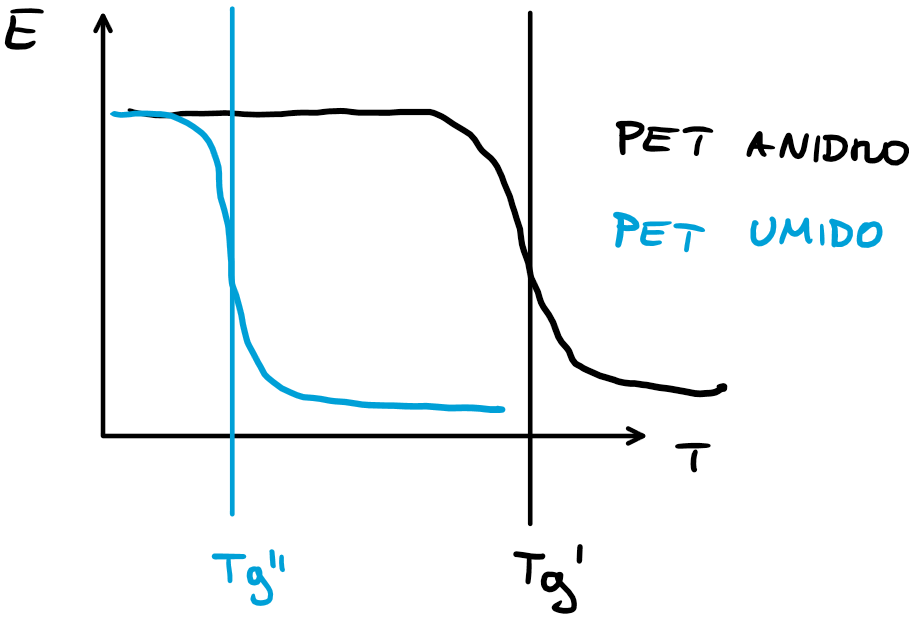 E
PET ANIDRO
PET UMIDO
T
Tg" Tg'